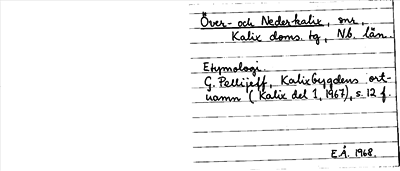 Över- och Nederkalix, snr,
Kalix doms. tg, Nb. län.
Etymologi
G. Pellijeff, Kalixbygdens ort-
namn (Kalix del 1, 1967), s. 12 f.
E.Å. 1968.